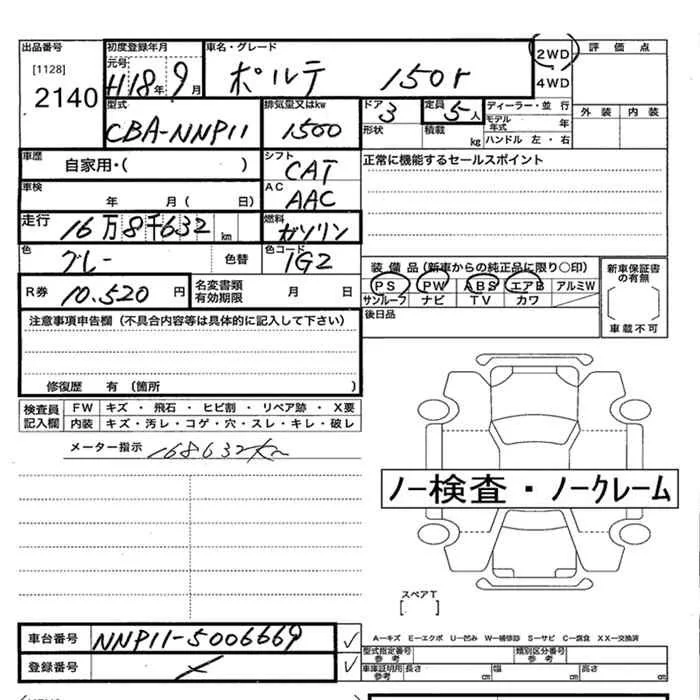 出品番号 初度登録年月 車名・グレード 2WD 評価点
[1128] 元号 H18年 9月 ポルテ 150r 4WD
2140 外装 内装
型式 排気量又はkw ドア 定員 ディーラー・並行
CBA-NNP11 1500 3 5人 モデル年式 年
形状 積載 kg ハンドル 左・右
車歴 自家用・( ) シフト CAT 正常に機能するセールスポイント
車検 年 月( 日) AC AAC
走行 16万8千632km 燃料 ガソリン
色 グレー 色替 色コード 1G2
装備品(新車からの純正品に限り○印) 新車保証書の有無
R券 10.520円 名変書類有効期限 月 日
PS PW ABS エアB アルミW
サンルーフ ナビ TV カワ
[ ]
車載不可
注意事項申告欄(不具合内容等は具体的に記入して下さい) 後日品
修復歴 有(箇所 )
検査員記入欄 FW キズ・飛石・ヒビ割・リペア跡・X要
内装 キズ・汚レ・コゲ・穴・スレ・キレ・破レ
メーター指示 168632km
ノー検査・ノークレーム
スペアT
[ ]
車台番号 NNP11-5006669 ✓
A−キズ E−エクボ U−凹み W−補修跡 S−サビ C−腐食 XX−交換済
登録番号 ✓
型式指定番号 参考 類別区分番号 参考
車庫証明用 参考 長さ cm 幅 cm 高さ cm